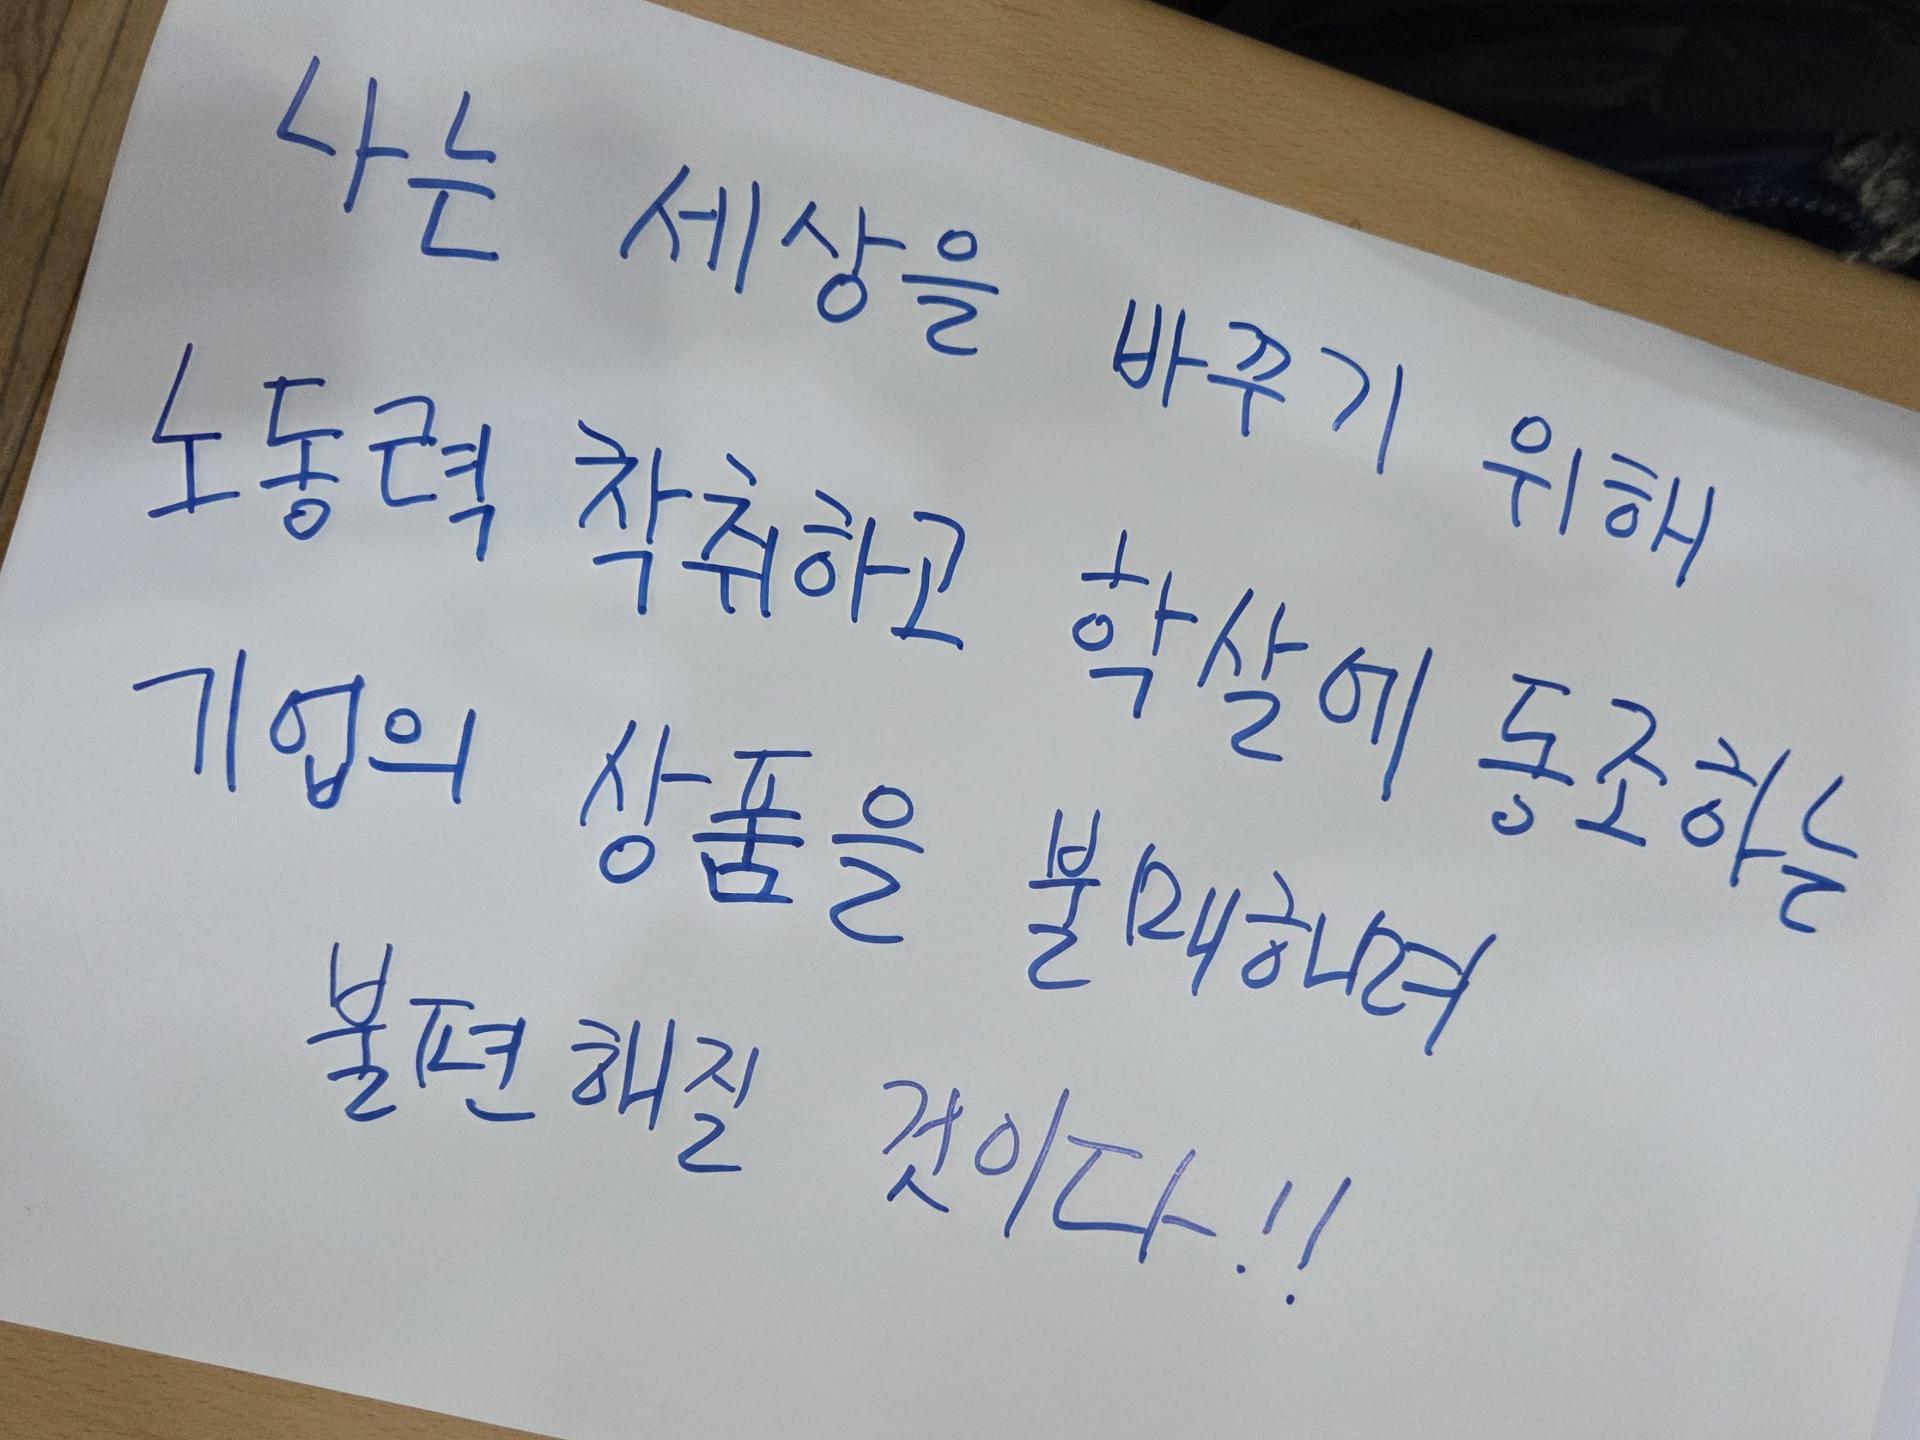 나는 세상을 바꾸기 위해
노동력 착취하고 학살에 동조하는
기업의 상품을 불매하며
불편해질 것이다!!